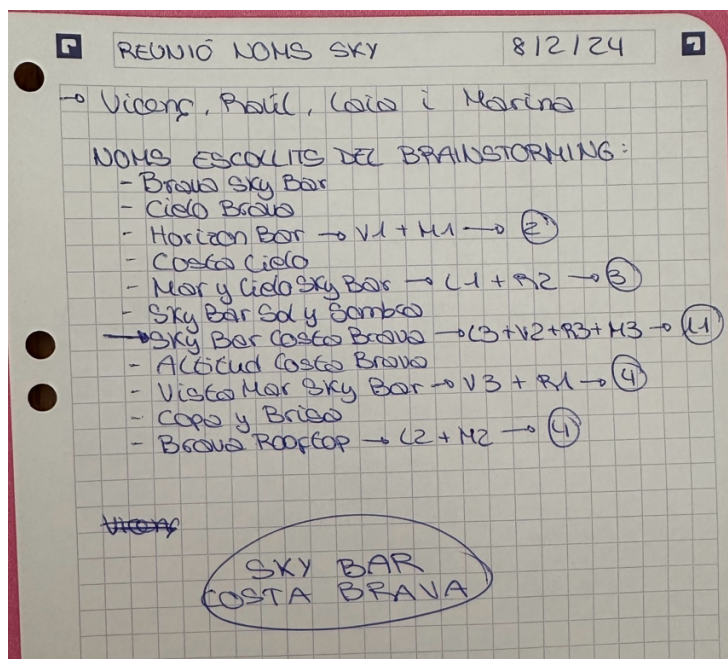 REUNIÓ NOMS SKY 8/2/24
→ Vicenç, Raül, Laia i Marina
NOMS ESCOLLITS DEL BRAINSTORMING:
- Brava Sky Bar
- Cielo Bravo
- Horizon Bar → V1 + M1 → 2
- Costa Cielo
- Mar y Cielo Sky Bar → L1 + R2 → 3
- Sky Bar Sol y Sombra
→ Sky Bar Costa Brava → L3+V2+R3+M3 → 11
- Altitud Costa Brava
- Vista Mar Sky Bar → V3 + R1 → 4
- Copa y Brisa
- Brava Rooftop → L2 + M2 → 4
Vicenç
SKY BAR
COSTA BRAVA